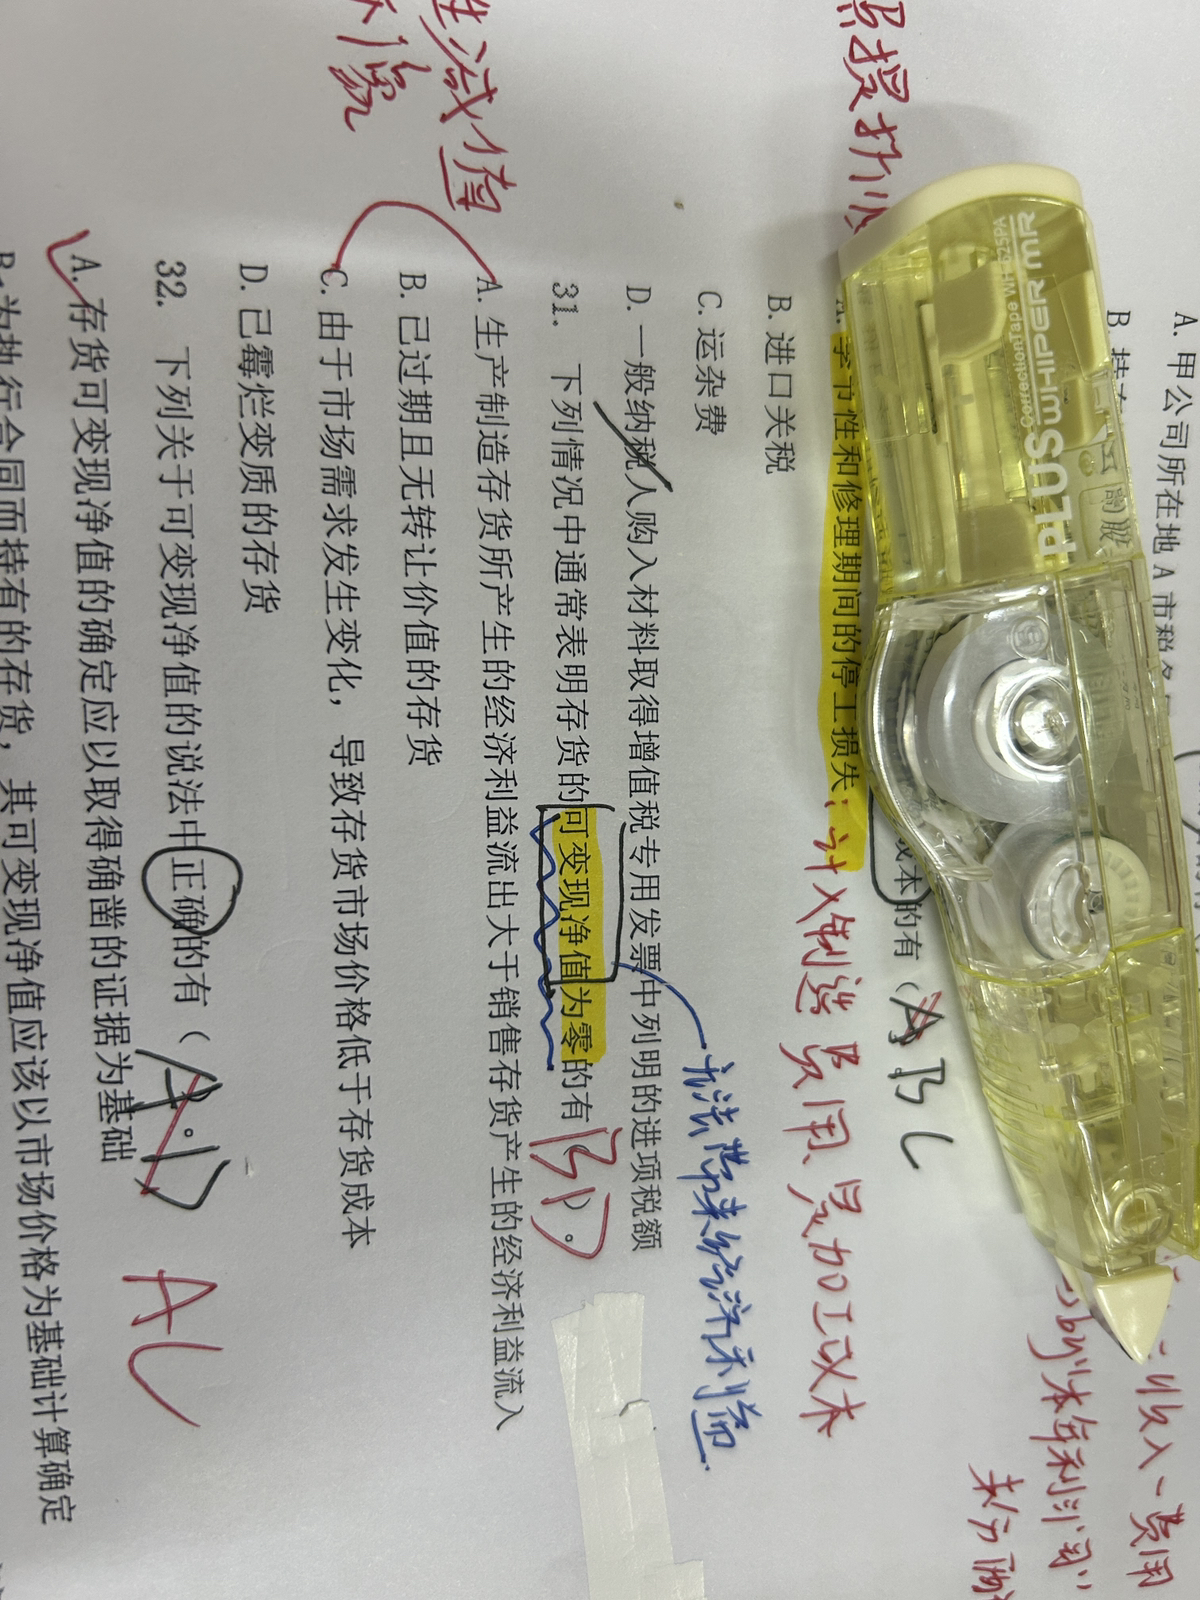 A. 甲公司所在地 A 市税务
B. 持有
季节性和修理期间的停工损失：计入制造费用、是加工成本
成本的有（ABC
B. 进口关税
C. 运杂费
D. 一般纳税人购入材料取得增值税专用发票中列明的进项税额
无法带来经济利益
31. 下列情况中通常表明存货的可变现净值为零的有（BD）。
A. 生产制造存货所产生的经济利益流出大于销售存货产生的经济利益流入
B. 已过期且无转让价值的存货
C. 由于市场需求发生变化，导致存货市场价格低于存货成本
D. 已霉烂变质的存货
减值
32. 下列关于可变现净值的说法中正确的有（A.D AC
A. 存货可变现净值的确定应以取得确凿的证据为基础
B. 为执行合同而持有的存货，其可变现净值应该以市场价格为基础计算确定
PLUS WHIPER MR
Correction Tape
收入-费用
本年利润
未分配